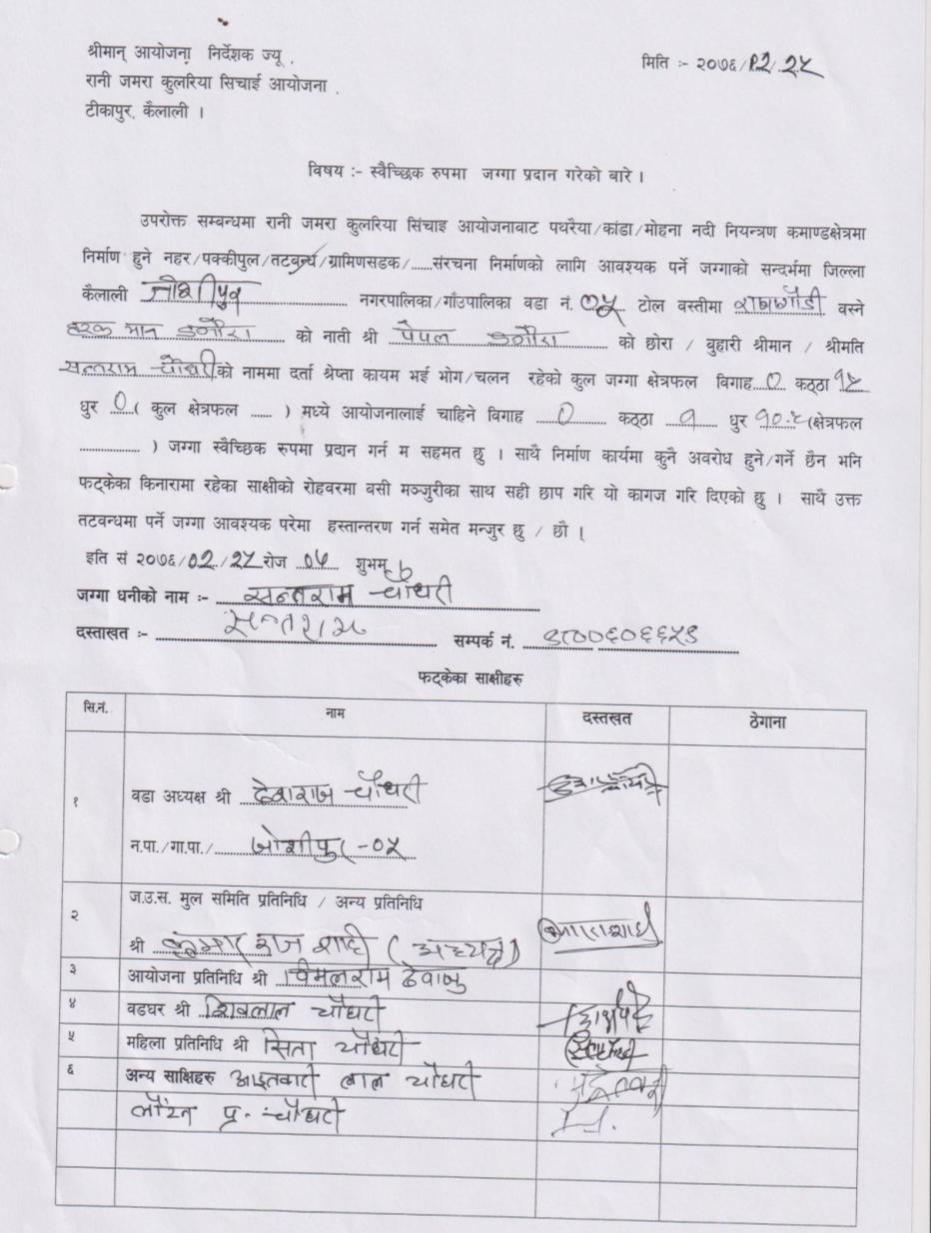 श्रीमान् आयोजना निर्देशक ज्यू,
मिति :- २०७६/१२/२५
रानी जमरा कुलरिया सिचाई आयोजना,
टीकापुर, कैलाली ।
विषय :- स्वैच्छिक रुपमा जग्गा प्रदान गरेको बारे ।
उपरोक्त सम्बन्धमा रानी जमरा कुलरिया सिंचाइ आयोजनाबाट पथरैया/कांडा/मोहना नदी नियन्त्रण कमाण्डक्षेत्रमा
निर्माण हुने नहर/पक्कीपुल/तटबन्ध/ग्रामिणसडक/......संरचना निर्माणको लागि आवश्यक पर्ने जग्गाको सन्दर्भमा जिल्ला
कैलाली जोशीपुर नगरपालिका/गाँउपालिका वडा नं. ०५ टोल वस्तीमा वस्ने
हरक मान डगौरा को नाती श्री पेपल डगौरा को छोरा / वुहारी श्रीमान / श्रीमति
सन्तराम चौधरी को नाममा दर्ता श्रेष्ता कायम भई भोग/चलन रहेको कुल जग्गा क्षेत्रफल विगाह ० कठ्ठा १५
धुर ० ( कुल क्षेत्रफल ...... ) मध्ये आयोजनालाई चाहिने विगाह ० कठ्ठा १ धुर १०.५ (क्षेत्रफल
.................. ) जग्गा स्वैच्छिक रुपमा प्रदान गर्न म सहमत छु । साथै निर्माण कार्यमा कुनै अवरोध हुने/गर्ने छैन भनि
फट्केका किनारामा रहेका साक्षीको रोहवरमा वसी मञ्जुरीका साथ सही छाप गरि यो कागज गरि दिएको छु । साथै उक्त
तटवन्धमा पर्ने जग्गा आवश्यक परेमा हस्तान्तरण गर्न समेत मन्जुर छु / छौ ।
इति सं २०७६/०२/२५ रोज ०५ शुभम्
जग्गा धनीको नाम :- सन्तराम चौधरी
दस्ताखत :- सन्तराम सम्पर्क नं. ९८००६०६६५९
फट्केका साक्षीहरु
सि.नं. नाम दस्तखत ठेगाना
१ वडा अध्यक्ष श्री देवाराज चौधरी
न.पा./गा.पा./ जोशीपुर -०५
२ ज.उ.स. मुल समिति प्रतिनिधि / अन्य प्रतिनिधि
श्री कुमार राज शाही (अध्यक्ष)
३ आयोजना प्रतिनिधि श्री विमलराम देवाजु
४ वडघर श्री शिवलाल चौधरी
५ महिला प्रतिनिधि श्री सिता चौधरी
६ अन्य साक्षिहरु आइतवारी लाल चौधरी
प्र. चौधरी